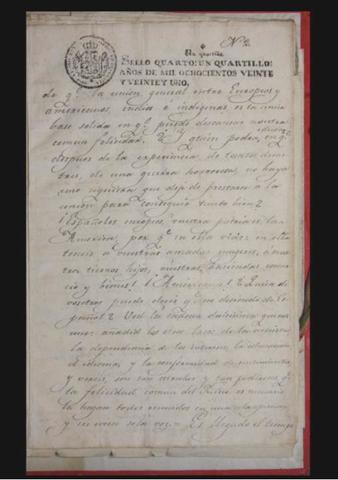 Nº 2.
Un quartillo
SELLO QUARTO: UN QUARTILLO:
AÑOS DE MIL OCHOCIENTOS VEINTE
Y VEINTE Y UNO.
de qᵉ la union general entre Europeos y
americanos, indios é indígenas es la única
base solida en qᵉ puede descansar nuestra
comun felicidad. ¿Y quien podrá
despues de la experiencia de tantos desas-
tres, de una guerra
uno siquiera que deje de prestarse á la
union para conseguir tanto bien?
¡Españoles europeos! vuestra patria es la
America, porqᵉ en ella vivis: en ella
teneis á vuestras amadas mugeres, á vues-
tros tiernos hijos, vuestras haciendas, comer-
cio y bienes! ¡Americanos! ¿Quien de
vosotros puede decir qᵉ no desciende de Es-
pañol? Ved la cadena dulcísima que nos
une: añadid los otros lazos de la
la dependencia de intereses, la educacion
é idioma, y la conformidad de sentimientos
y vereis, son tan
la felicidad comun del Reino es necesario
la hagan todos reunidos en una sola opinion
y en una sola voz. Es llegado el tiempo